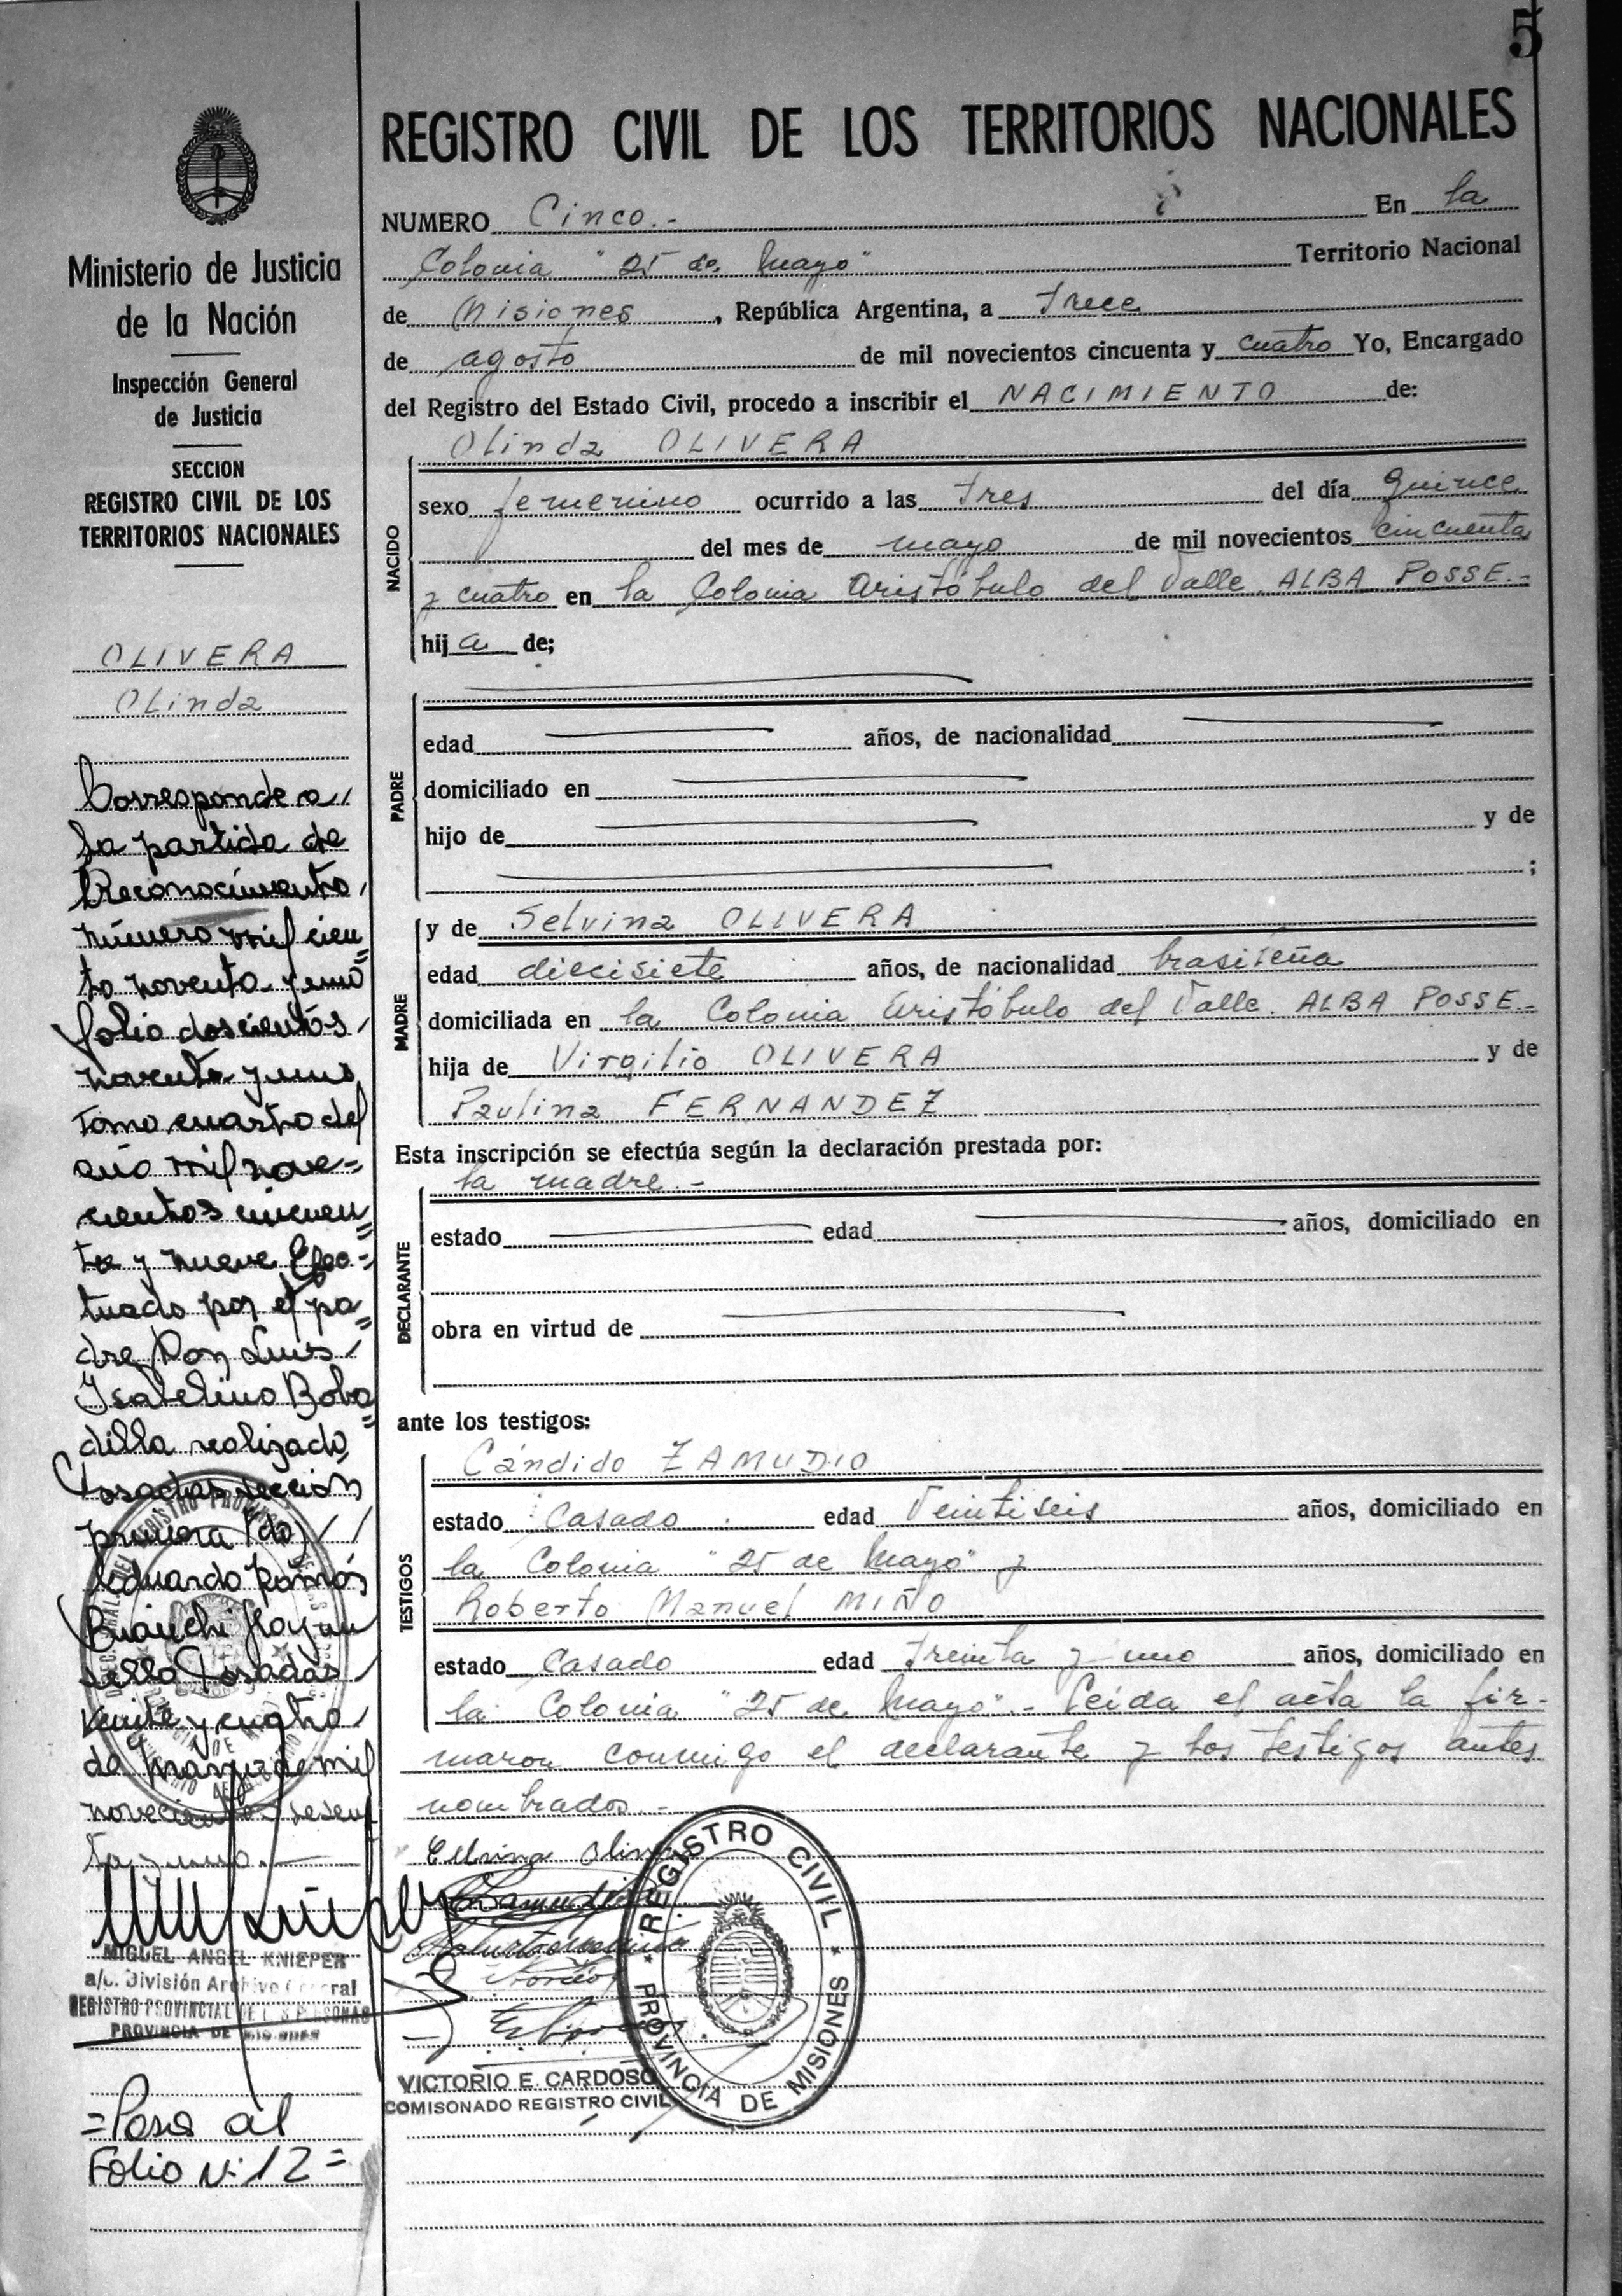 5
REGISTRO CIVIL DE LOS TERRITORIOS NACIONALES
NUMERO Cinco.- En la
Colonia "25 de Mayo" Territorio Nacional
de Misiones, República Argentina, a trece
de agosto de mil novecientos cincuenta y cuatro Yo, Encargado
del Registro del Estado Civil, procedo a inscribir el NACIMIENTO de:
Olinda OLIVERA
NACIDO
sexo femenino ocurrido a las tres del día quince
del mes de mayo de mil novecientos cincuenta
y cuatro en la Colonia Aristóbulo del Valle. ALBA POSSE.-
hija de;
PADRE
edad años, de nacionalidad
domiciliado en
hijo de y de
;
MADRE
y de Selvina OLIVERA
edad diecisiete años, de nacionalidad brasileña
domiciliada en la Colonia Aristóbulo del Valle. ALBA POSSE.-
hija de Virgilio OLIVERA y de
Paulina FERNANDEZ
Esta inscripción se efectúa según la declaración prestada por:
la madre.-
DECLARANTE
estado edad años, domiciliado en
obra en virtud de
ante los testigos:
TESTIGOS
Cándido ZAMUDIO
estado Casado edad Veintiseis años, domiciliado en
la Colonia "25 de Mayo" y
Roberto Manuel MIÑO
estado Casado edad treinta y uno años, domiciliado en
la Colonia "25 de Mayo".- Leída el acta la fir-
maron conmigo el declarante y los testigos antes
nombrados.-
VICTORIO E. CARDOSO
COMISONADO REGISTRO CIVIL
REGISTRO CIVIL
PROVINCIA DE MISIONES
Ministerio de Justicia
de la Nación
Inspección General
de Justicia
SECCION
REGISTRO CIVIL DE LOS
TERRITORIOS NACIONALES
OLIVERA
Olinda
Corresponde a
la partida de
Reconocimiento
número mil cien=
to noventa y uno
folio doscientos
noventa y uno
Tomo cuarto del
año mil nove=
cientos cincuen=
ta y nueve Efec=
tuado por el pa=
dre Don Luis
Isabelino Boba=
dilla realizado
Posadas sección
primera (do)
Eduardo Ramós
Bianchi Hay un
sello Posadas
veinte y cuatro
de marzo de mil
novecientos sesen
ta y uno.-
MIGUEL ANGEL KNIEPER
a/c. División Archivo General
REGISTRO PROVINCIAL DE L S PERSONAS
PROVINCIA DE MISIONES
=Pasa al
Folio Nº 12=